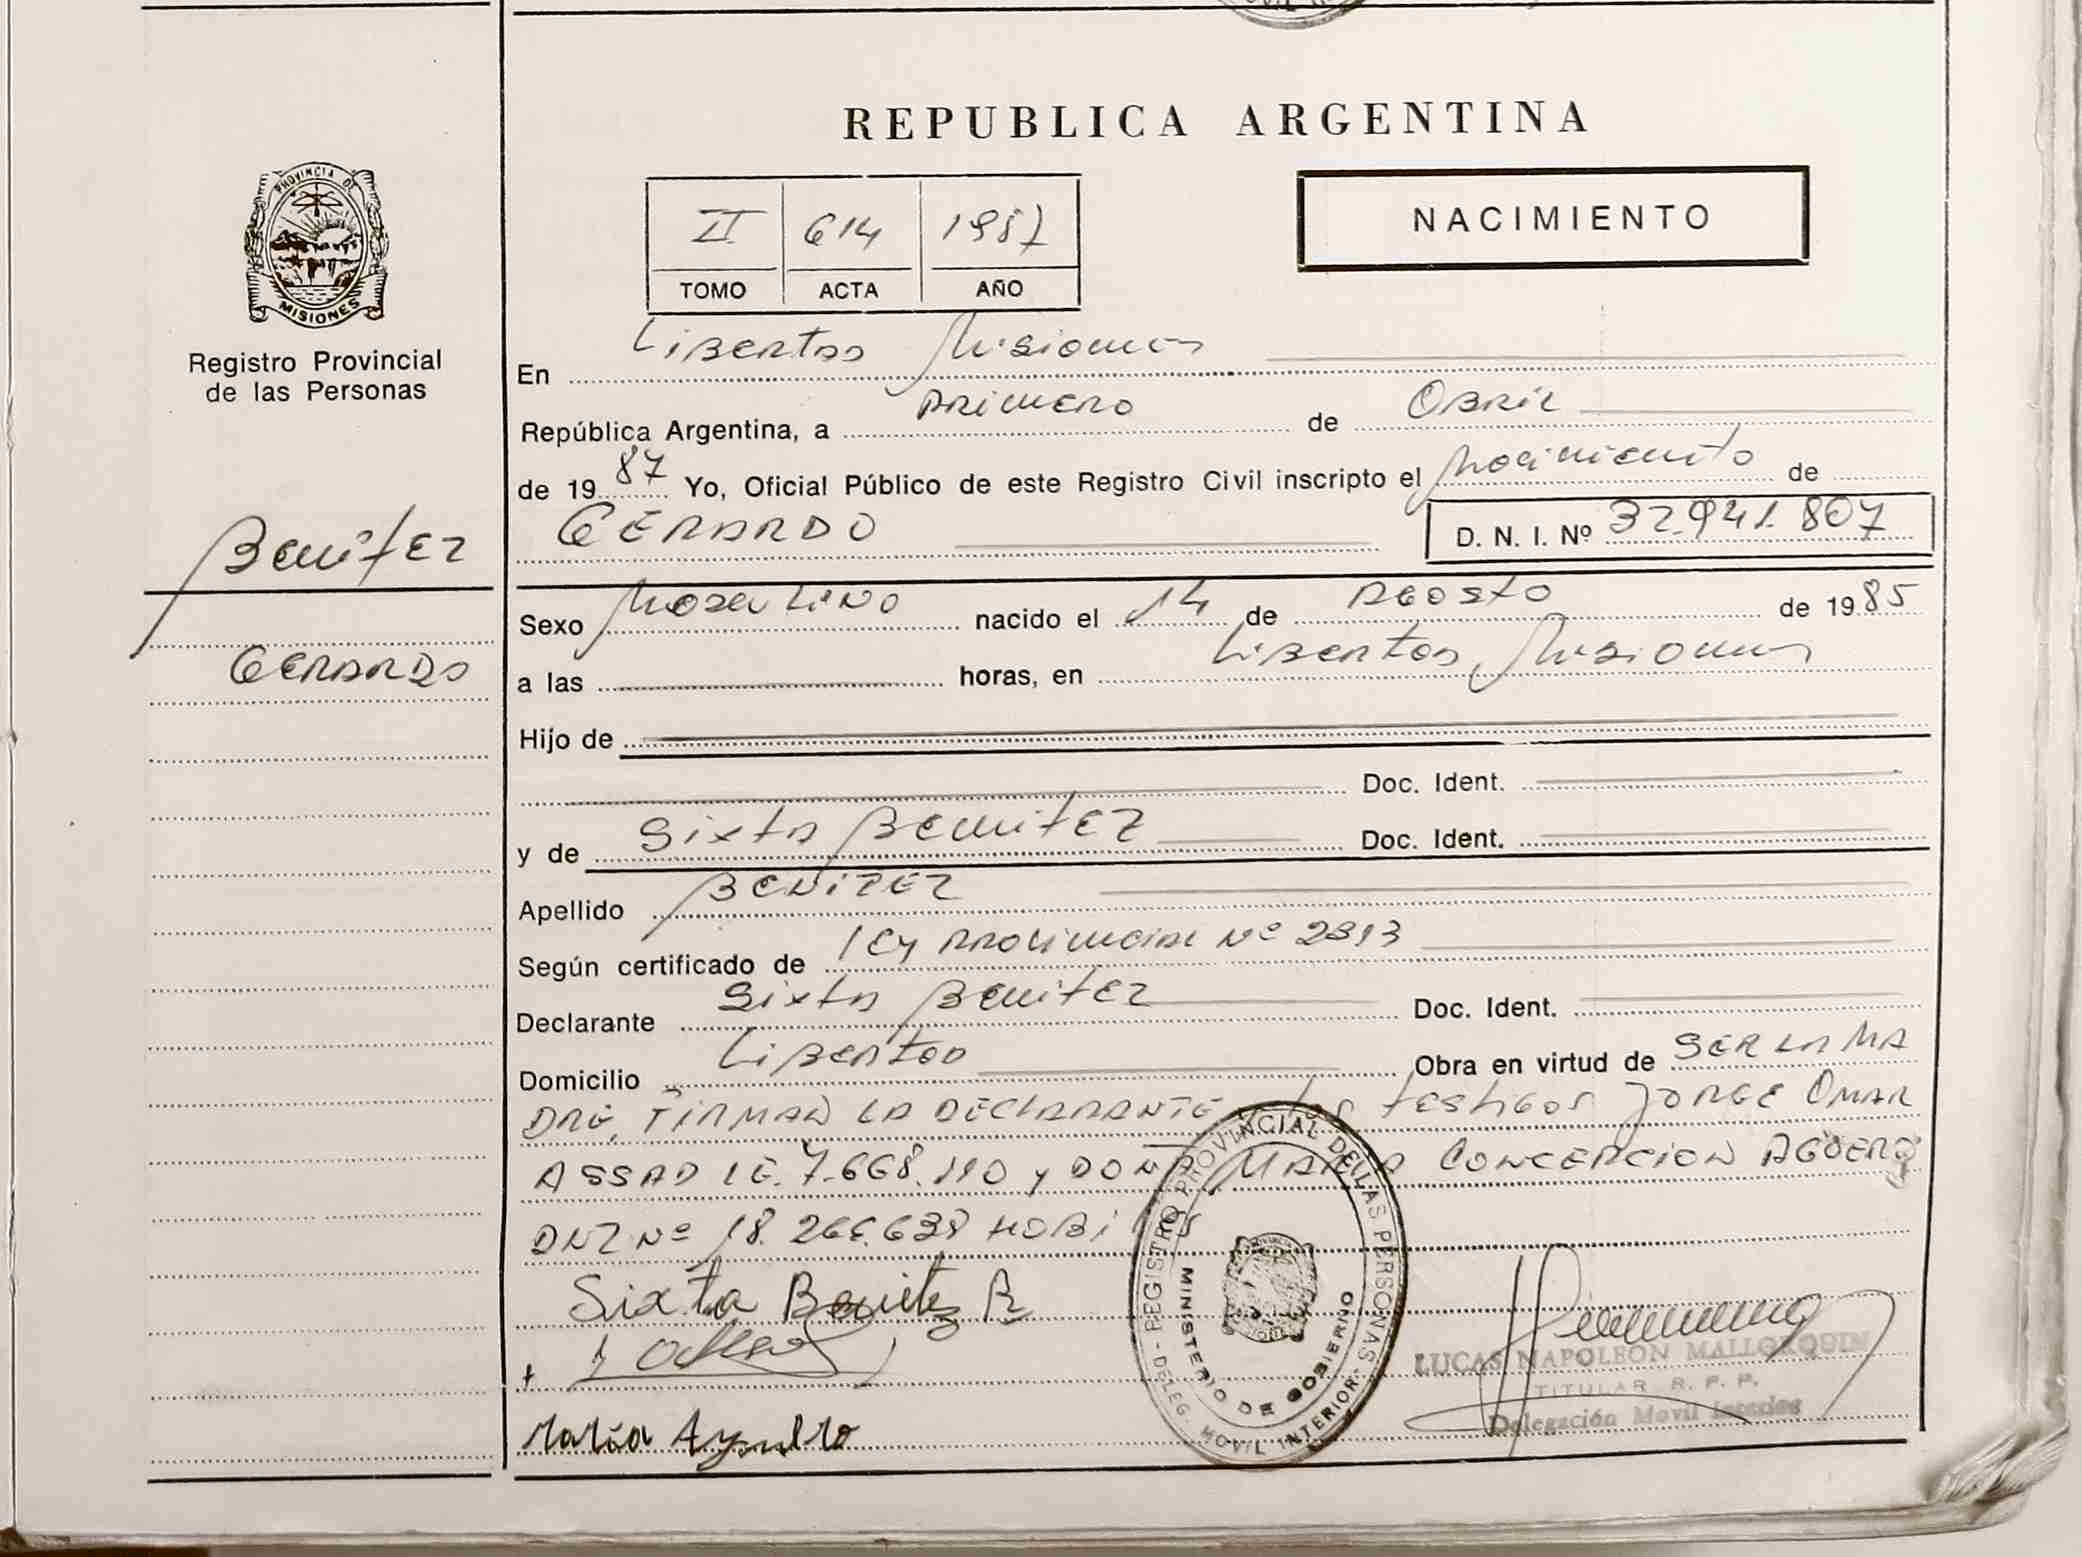 REPUBLICA ARGENTINA
PROVINCIA DE
MISIONES
Registro Provincial
de las Personas
II 614 1987
TOMO ACTA AÑO
NACIMIENTO
En Libertad Misiones
República Argentina, a primero de Abril
de 1987 Yo, Oficial Público de este Registro Civil inscripto el Nacimiento de
GERARDO D. N. I. Nº 32.941.807
Benitez
GERARDO
Sexo Masculino nacido el 14 de Agosto de 1985
a las horas, en Libertad Misiones
Hijo de
Doc. Ident.
y de Sixta Benitez Doc. Ident.
Apellido BENITEZ
Según certificado de ley Provincial Nº 2313
Declarante Sixta Benitez Doc. Ident.
Domicilio Libertad Obra en virtud de SER LA MA
DRE, FIRMAN LA DECLARANTE y los testigos JORGE OMAR
ASSAD LE. 7.668.190 y DOÑA MARIA CONCEPCION AGÜERO
DNI Nº 18.266.638 HABI
Sixta Benitez B
REGISTRO PROVINCIAL DE LAS PERSONAS
MINISTERIO DE GOBIERNO
DELEG. MOVIL INTERIOR
LUCAS NAPOLEON MALLORQUIN
TITULAR R. P. P.
Delegación Movil Interior
María